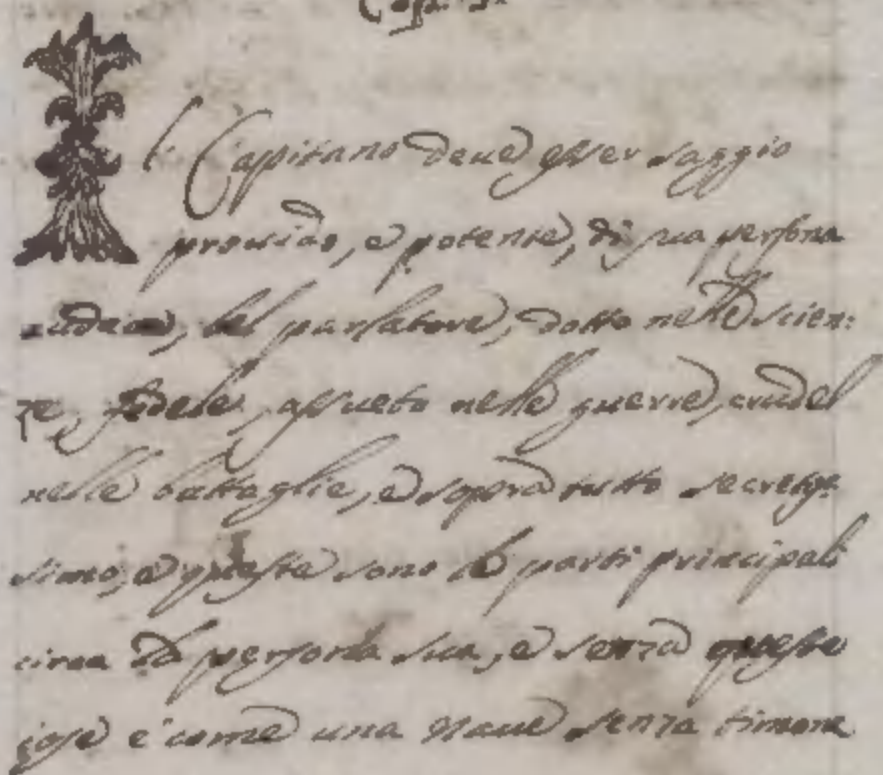 Il Capitano deue esser saggio
prouido, e potente, di sua persona
audace, bel parlatore, dotto nelle scien:
ze, fedele, assueto nelle guerre, crudel
nelle battaglie, e sopra tutto secretis:
simo, e queste sono le parti principali
circa la persona sua, e senza queste
cose è come una naue senza timone